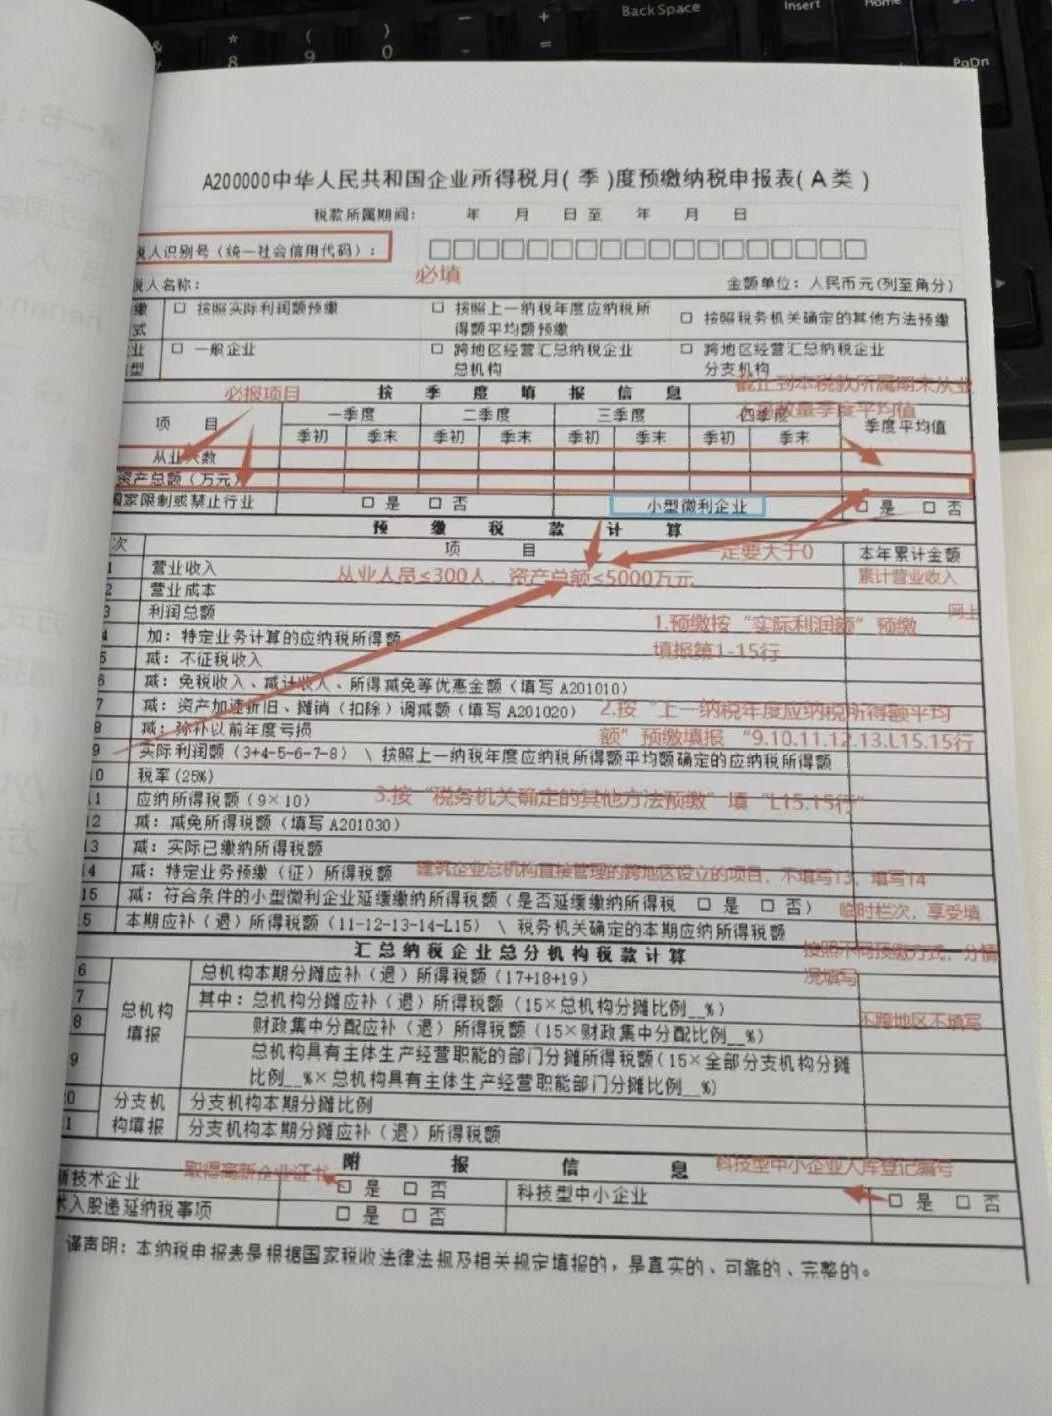 BackSpace
Insert
Home
PgDn
&
*
8
(
9
)
0
-
+
=
A200000中华人民共和国企业所得税月(季)度预缴纳税申报表(A类)
税款所属期间: 年 月 日 至 年 月 日
税人识别号(统一社会信用代码):
必填
税人名称:
金额单位:人民币元(列至角分)
缴
式
□ 按照实际利润额预缴
□ 按照上一纳税年度应纳税所
得额平均额预缴
□ 按照税务机关确定的其他方法预缴
业
型
□ 一般企业
□ 跨地区经营汇总纳税企业
总机构
□ 跨地区经营汇总纳税企业
分支机构
必报项目
按 季 度 填 报 信 息
截止到本税款所属期末从业
数量季度平均值
项 目
一季度
二季度
三季度
四季度
季度平均值
季初 季末 季初 季末 季初 季末 季初 季末
从业人数
资产总额(万元)
国家限制或禁止行业
□ 是 □ 否
小型微利企业
□ 是 □ 否
预 缴 税 款 计 算
次
项 目
一定要大于0
本年累计金额
1 营业收入
从业人员≤300人,资产总额≤5000万元
累计营业收入
2 营业成本
3 利润总额
网上
1.预缴按“实际利润额”预缴
填报第1-15行
4 加:特定业务计算的应纳税所得额
5 减:不征税收入
6 减:免税收入、减计收入、所得减免等优惠金额(填写A201010)
7 减:资产加速折旧、摊销(扣除)调减额(填写A201020)
2.按“上一纳税年度应纳税所得额平均
额”预缴填报“9.10.11.12.13.L15.15行
8 减:弥补以前年度亏损
9 实际利润额(3+4-5-6-7-8) \ 按照上一纳税年度应纳税所得额平均额确定的应纳税所得额
10 税率(25%)
11 应纳所得税额(9×10)
3.按“税务机关确定的其他方法预缴”填“L15.15行”
12 减:减免所得税额(填写A201030)
13 减:实际已缴纳所得税额
14 减:特定业务预缴(征)所得税额
建筑企业总机构直接管理的跨地区设立的项目,不填写13,填写14
15 减:符合条件的小型微利企业延缓缴纳所得税额(是否延缓缴纳所得税 □ 是 □ 否)
临时栏次,享受填
5 本期应补(退)所得税额(11-12-13-14-L15) \ 税务机关确定的本期应纳所得税额
汇总纳税企业总分机构税款计算
按照不同预缴方式,分情
况填写
总机构
填报
6 总机构本期分摊应补(退)所得税额(17+18+19)
7 其中:总机构分摊应补(退)所得税额(15×总机构分摊比例__%)
8 财政集中分配应补(退)所得税额(15×财政集中分配比例__%)
不跨地区不填写
9 总机构具有主体生产经营职能的部门分摊所得税额(15×全部分支机构分摊
比例__%×总机构具有主体生产经营职能部门分摊比例__%)
分支机
构填报
20 分支机构本期分摊比例
21 分支机构本期分摊应补(退)所得税额
附 报 信 息
取得高新企业证书
科技型中小企业入库登记编号
新技术企业
□ 是 □ 否
科技型中小企业
□ 是 □ 否
术入股递延纳税事项
□ 是 □ 否
谨声明:本纳税申报表是根据国家税收法律法规及相关规定填报的,是真实的、可靠的、完整的。